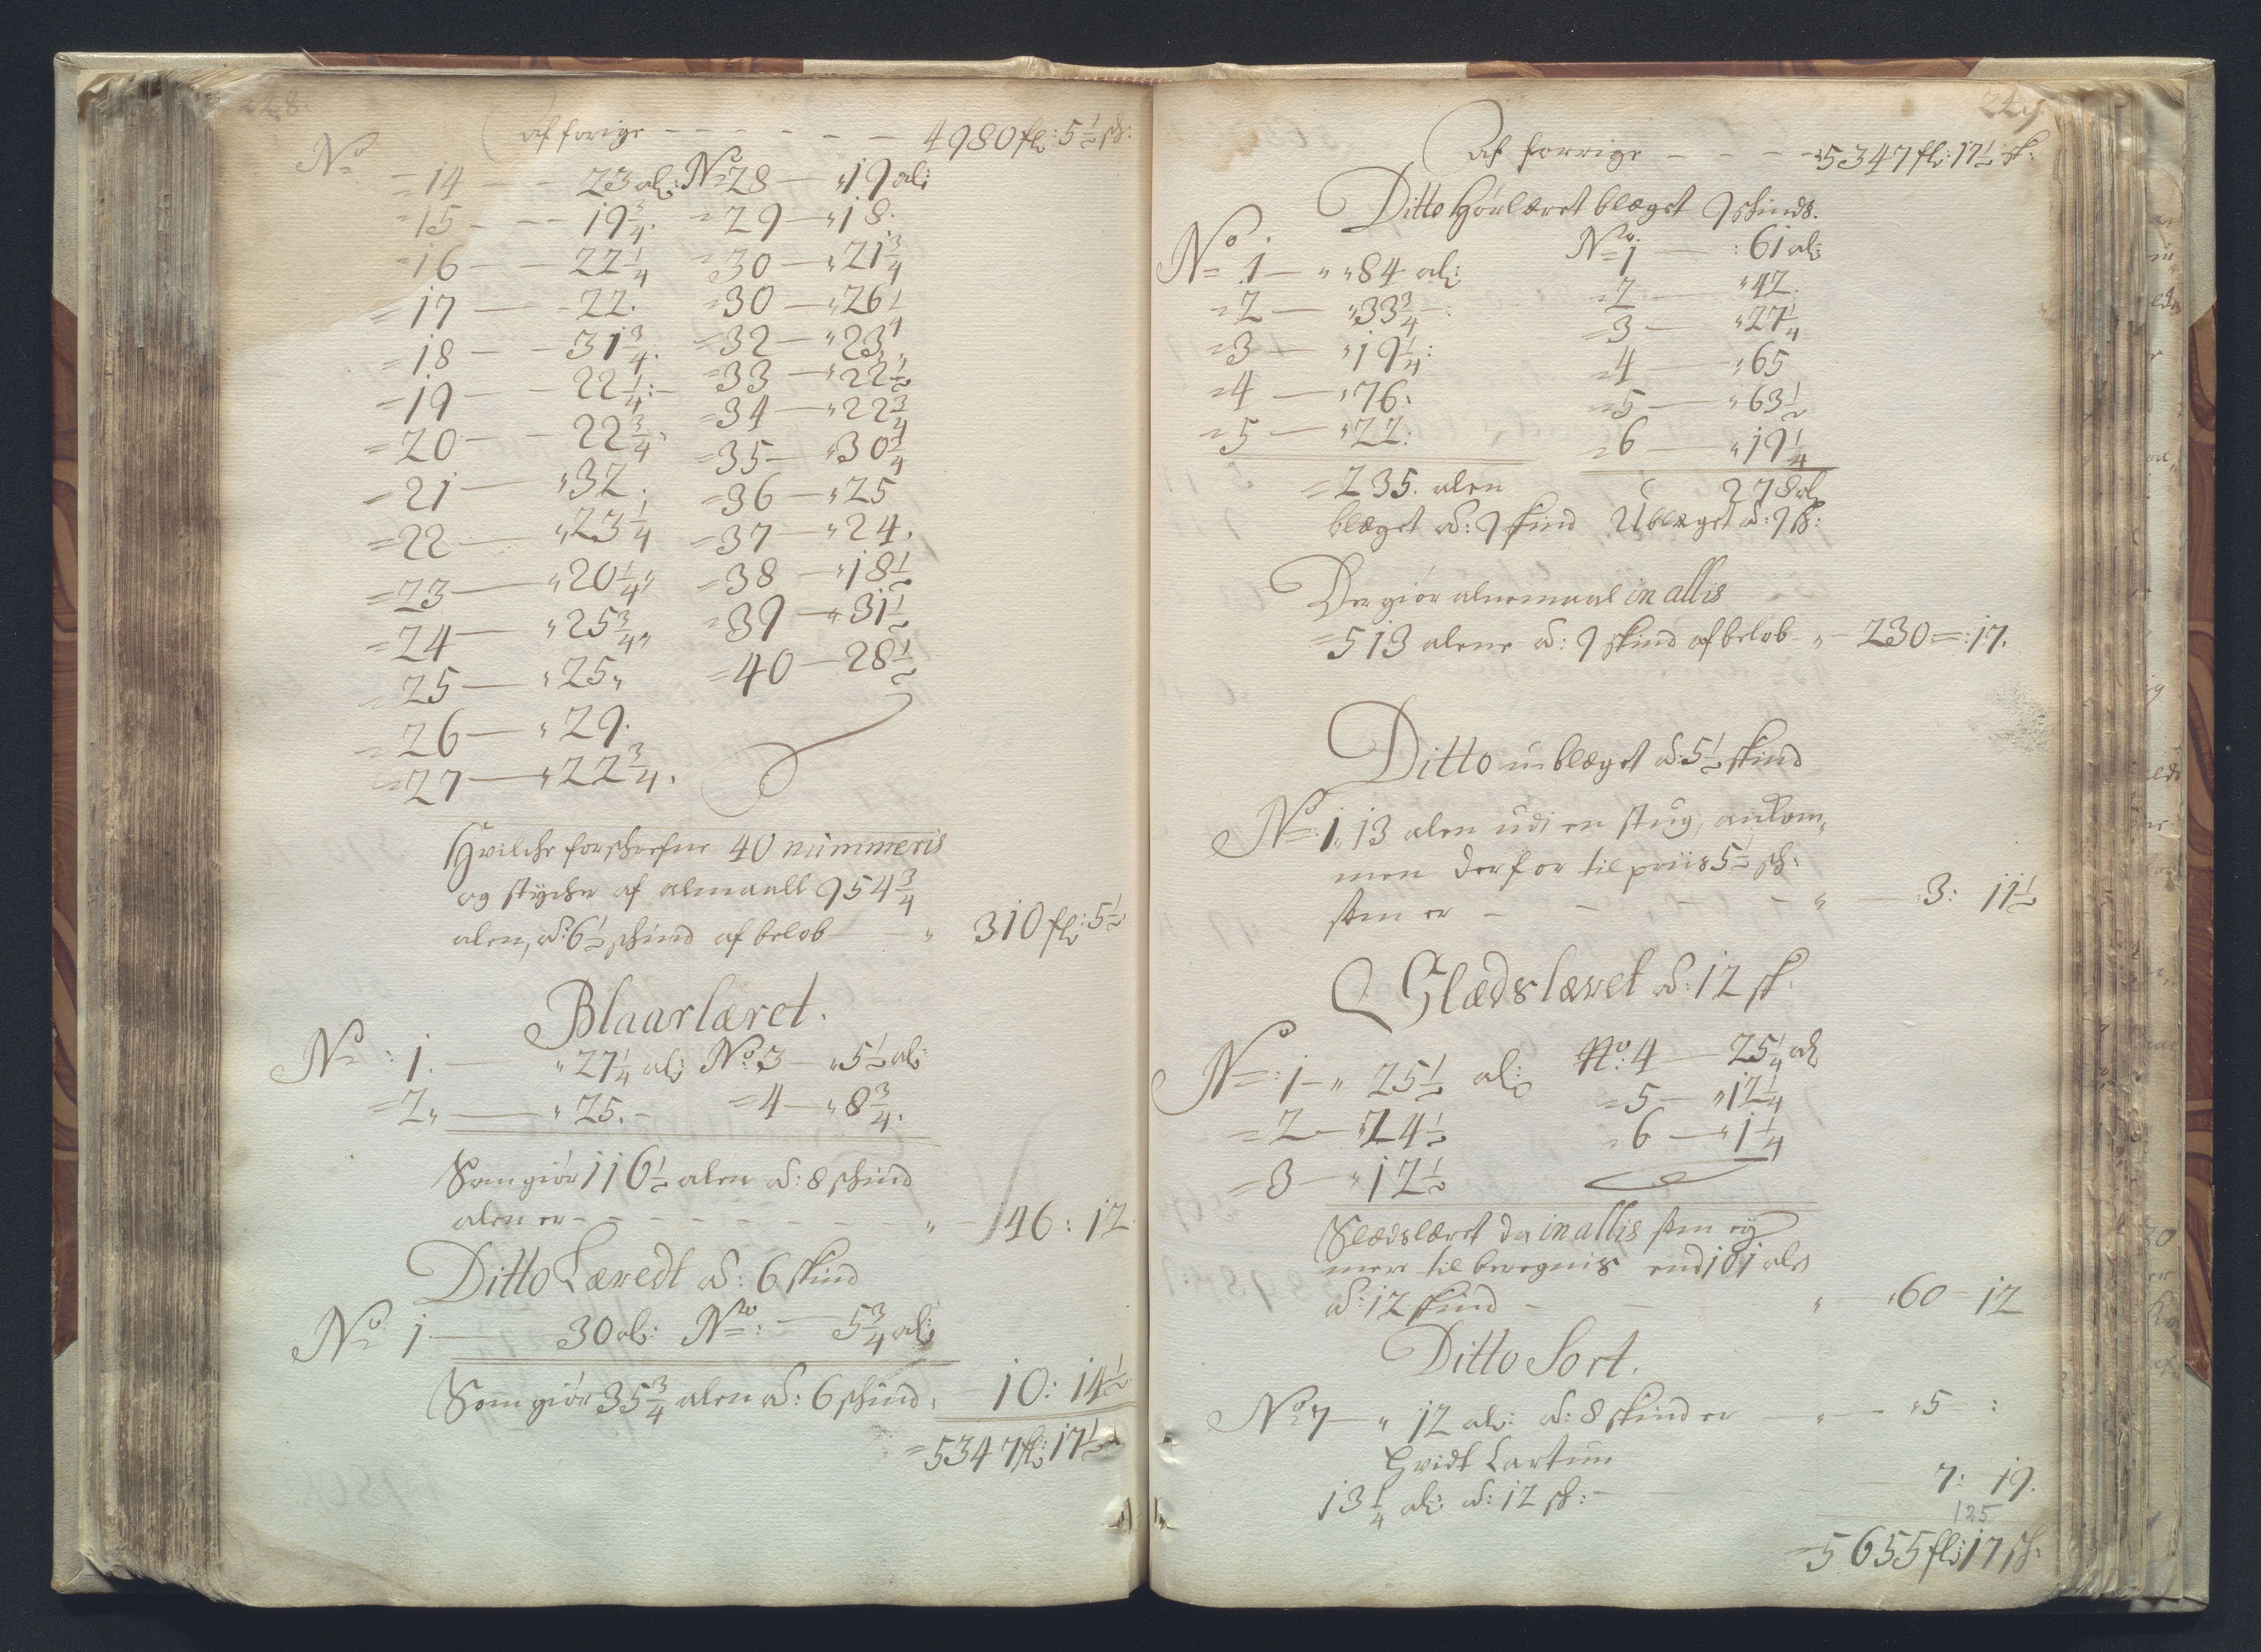 228.
af forige - - - - - - 4980 fl: 5½ sk:
No = 14 - - 23 al: No 28 — " 19 al:
= 15 - - - 19¾. = 29 — " 18.
= 16 - - 22¼ = 30 — " 21¾
= 17 — - 22. = 30 — " 26¼
= 18 - - 31¾. = 32 — " 23¼
= 19 - - 22¼: - = 33 — " 22½
= 20 - - 22¾. = 34 — " 22¾
= 21 — " 32. = 35 — " 30¼
= 22 — " 23¼ = 36 — " 25
= 23 — " 20¼ " = 37 — " 24.
= 24 — " 25¾ " = 38 — " 18½
= 25 — " 25 " = 39 — " 31½
= 26 — " 29. = 40 — 28½
= 27 — " 22¾.
Hvilche forschrefne 40 nummeris
og stycher af almaall 954¾
alen, a: 6½ schind af belob — " 310 fl: 5½
Blaarlæret.
No: 1. — " 27¼ al: No: 3 — " 5½ al:
= 2 " — " 25. - = 4 — " 8¾.
Som giør 116½ alen a: 8 schind
alen er - - - - - - - " - 46: 12
Ditto Læredt a: 6 skind
No 1 — 30 al: No: — 5¾ al:
Som giør 35¾ alen a: 6 schind: - 10: 14½
= 5347 fl: 17½
229.
af forrige - - - - 5347 fl: 17½ sk:
Ditto Hørlæret blæget 9 schinds.
No 1 — " " 84 al: No 1 — : 61 al:
= 2 — " 33¾ = 2 — " 42.
= 3 — " 19¼: = 3 — " 27¼
= 4 — " 76: = 4 — " 65
= 5 — " 22: = 5 — " 63½
= 6 — " 19¼
= 235. alen 278 al:
blæget a: 9 skind Ublæget a: 9 sk:
Der giør alnemaal in allis
= 513 alene a: 9 skind af belob " - 230 =: 17.
Ditto u-blæget a: 5½ skind
No: 1. 13 alen udi en stug, ankom,
men derfor til priis 5½ sk:
som er - - - - " — 3: 11½
Slædslæret a: 12 sk.
No: 1 - " 25½ al: No: 4 — 25¼ al
= 2 — " 24½ = 5 — " 12¼
= 3 — " 12½ = 6 — " 1¼
Slædslæret da in allis som ey
mere til beregnis end 101 al:
a: 12 skind - — " — " 60 - 12
Ditto Sort.
No 7 — " 12 al: a: 8 skind er — " — " 5 :
Hvidt Cartun
13¼ al: a: 12 sk: - — 7: 19.
125
= 5655 fl: 17 sk.